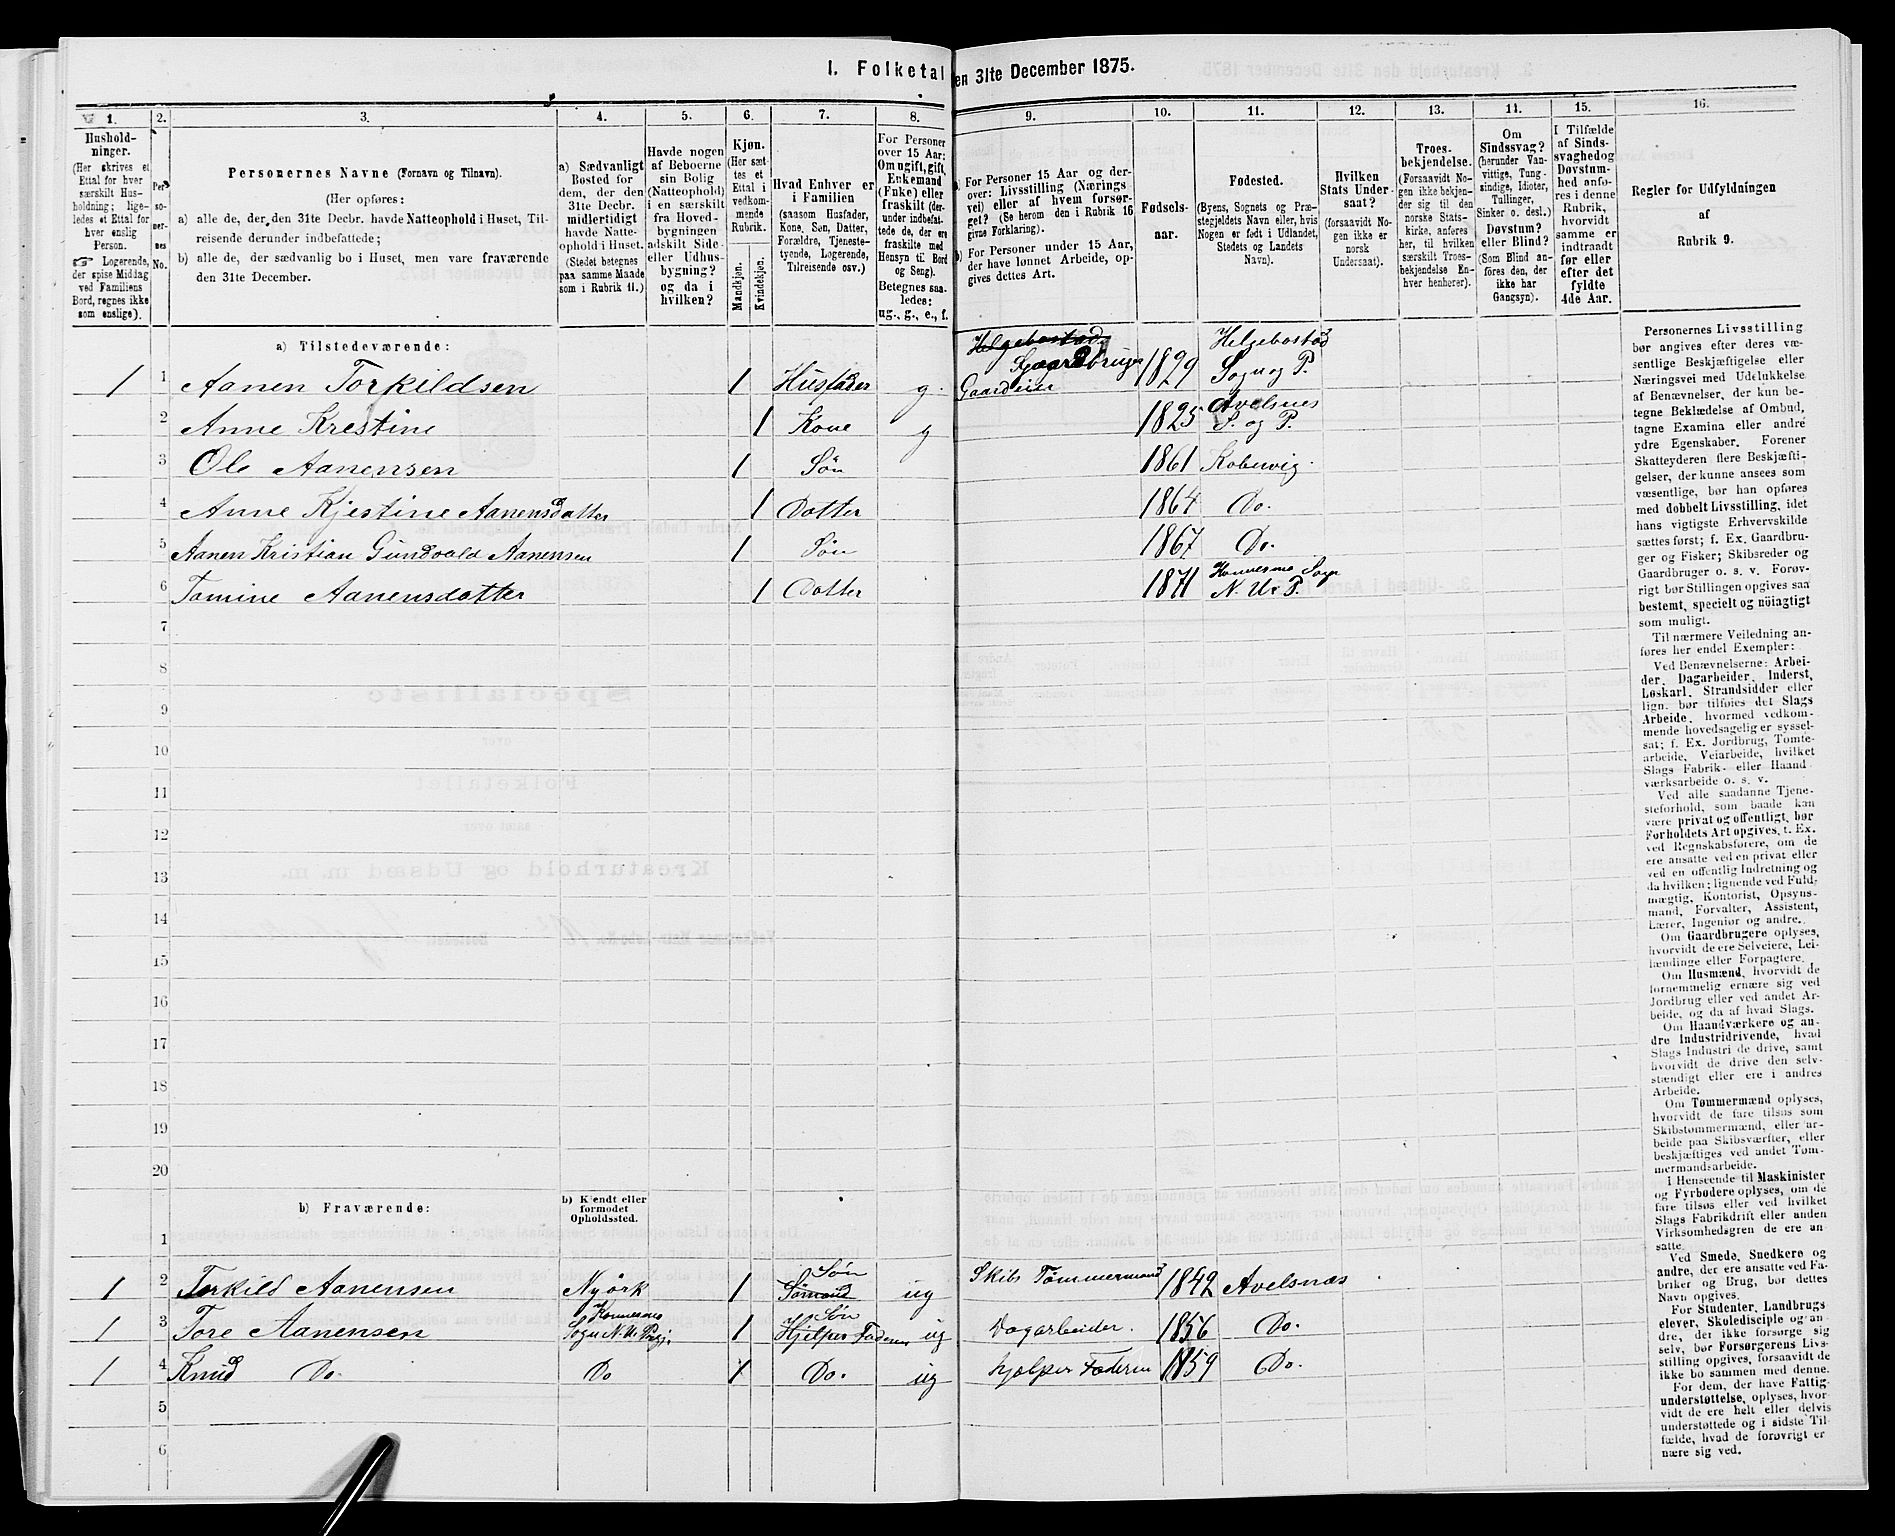 I. Folketal den 31te December 1875.
1. 2. 3. 4. 5. 6. 7. 8. 9. 10. 11. 12. 13. 14. 15. 16.
Hushold-
ninger.
(Her skrives et
Ettal for hver
særskilt Hus-
holdning; lige-
ledes et Ettal for
hver enslig
Person.
☞ Logerende,
der spise Middag
ved Familiens
Bord, regnes ikke
som enslige).
Per-
so-
ner-
nes
No.
Personernes Navne (Fornavn og Tilnavn).
(Her opføres:
a) alle de, der den 31te Decbr. havde Natteophold i Huset, Til-
reisende derunder indbefattede;
b) alle de, der sædvanlig bo i Huset, men vare fraværende
den 31te December.
a) Sædvanligt
Bosted for
dem, der den
31te Decbr.
midlertidigt
havde Natte-
ophold i Huset.
(Stedet betegnes
paa samme Maade
som i Rubrik 11.)
Havde nogen
af Beboerne
sin Bolig
(Natteophold)
i en særskilt
fra Hoved-
bygningen
adskilt Side-
eller Udhus-
bygning?
og da i
hvilken?
Kjøn.
(Her sæt-
tes et
Ettal i
vedkom-
mende
Rubrik.
Mandkjøn.
Kvindekjøn.
Hvad Enhver er
i Familien
(saasom Husfader,
Kone, Søn, Datter,
Forældre, Tjeneste-
tyende, Logerende,
Tilreisende osv.)
For Personer
over 15 Aar:
Om ugift, gift,
Enkemand
(Enke) eller
fraskilt (der-
under indbefat-
tede de, der ere
fraskilte med
Hensyn til Bord
og Seng).
Betegnes saa-
ledes:
ug., g., e., f.
a) For Personer 15 Aar og der-
over: Livsstilling (Nærings-
vei) eller af hvem forsør-
get? (Se herom den i Rubrik 16
givne Forklaring).
b) For Personer under 15 Aar,
der have lønnet Arbeide, op-
gives dettes Art.
Fødsels-
aar.
Fødested.
(Byens, Sognets og Præ-
stegjeldets Navn eller, hvis
Nogen er født i Udlandet,
Stedets og Landets
Navn).
Hvilken
Stats Under-
saat?
(forsaavidt No-
gen ikke er
norsk
Undersaat).
Troes-
bekjendelse.
(Forsaavidt No-
gen ikke bekjen-
der sig til den
norske Stats-
kirke, anføres
her, til hvilken
særskilt Troes-
bekjendelse En-
hver henhører).
Om
Sindssvag?
(herunder Van-
vittige, Tung-
sindige, Idioter,
Tullinger,
Sinker o. desl.)
Døvstum?
eller Blind?
(Som Blind an-
føres den, der
ikke har
Gangsyn).
I Tilfælde
af Sinds-
svaghed og
Døvstum-
hed anfø-
res i denne
Rubrik,
hvorvidt
samme er
indtraadt
før eller
efter det
fyldte
4de Aar.
Regler for Udfyldningen
af
Rubrik 9.
a) Tilstedeværende:
Helgebostad Helgebostad
Gaardbruger
1 1 Aanen Torkildsen 1 Husfader g. Gaardeier 1829 Sogn og P.
Avelsnes
2 Anne Krestine 1 Kone g 1825 S. og P.
3 Ole Aanensen 1 Søn 1861 Kobervig.
4 Anne Kjestine Aanensdatter 1 Datter 1864 Do.
5 Aanen Kristian Gundvald Aanensen 1 Søn 1867 Do.
Konnesmo Sogn
6 Tomine Aanensdatter 1 Datter 1871 N. U. P.
7
8
9
10
11
12
13
14
15
16
17
18
19
20
b) Fraværende:
b) Kjendt eller
formodet
Opholdssted.
1
Søn
1 2 Torkild Aanensen Nyörk 1 Sømand ug Skibs Tømmermand 1842 Avelsnæs
Konnesmo Søn
1 3 Tore Aanensen Sogn N. U. Præj. 1 Hjelper Faderen ug Dagarbeider. 1856 Do.
1 4 Knud Do. Do 1 Do. ug hjelper Faderen 1859 Do.
5
6
Personernes Livsstilling
bør angives efter deres væ-
sentlige Beskjæftigelse eller
Næringsvei med Udelukkelse
af Benævnelser, der kun be-
tegne Beklædelse af Ombud,
tagne Examina eller andre
ydre Egenskaber. Forener
Skatteyderen flere Beskjæfti-
gelser, der kunne ansees som
væsentlige, bør han opføres
med dobbelt Livsstilling, idet
hans vigtigste Erhvervskilde
sættes først; f. Ex. Gaardbru-
ger og Fisker; Skibsreder og
Gaardbruger o. s. v. Forøv-
rigt bør Stillingen opgives saa
bestemt, specielt og nöiagtigt
som muligt.
Til nærmere Veiledning an-
føres her endel Exempler:
Ved Benævnelserne: Arbei-
der, Dagarbeider, Inderst,
Løskarl, Strandsidder eller
lign. bør tilføies det Slags
Arbeide, hvormed vedkom-
mende hovedsagelig er syssel-
sat; f. Ex. Jordbrug, Tomte-
arbeide, Veiarbeide, hvilket
Slags Fabrik- eller Haand-
værksarbeide o. s. v.
Ved alle saadanne Tjene-
steforhold, som baade kan
være privat og offentligt, bør
Forholdets Art opgives, t. Ex.
ved Regnskabsførere, om de
ere ansatte ved en privat eller
ved en offentlig Indretning og
da hvilken; lignende ved Fuld-
mægtig, Kontorist, Opsyns-
mand, Forvalter, Assistent,
Lærer, Ingeniør og andre.
Om Gaardbrugere oplyses,
hvorvidt de ere Selveiere, Lei-
lændinge eller Forpagtere.
Om Husmænd, hvorvidt de
fornemmelig ernære sig ved
Jordbrug eller ved andet Ar-
beide, og da af hvad Slags.
Om Haandværkere og an-
dre Industridrivende, hvad
Slags Industri de drive, samt
hvorvidt de drive den selv-
stændigt eller ere i andres
Arbeide.
Om Tømmermænd oplyses,
hvorvidt de fare tilsøs som
Skibstømmermænd, eller ar-
beide paa Skibsværfter, eller
beskjæftiges ved andet Tøm-
mermandsarbeide.
I Henseende til Maskinister
og Fyrbødere oplyses, om de
fare tilsøs eller ved hvilket
Slags Fabrikdrift eller anden
Virksomhedsgren de ere an-
satte.
Ved Smede, Snedkere og
andre, der ere ansatte ved Fa-
briker og Brug, bør dettes
Navn opgives.
For Studenter, Landbrugs-
elever, Skoledisciple og an-
dre, der ikke forsørge sig
selv, bør Forsørgerens Livs-
stilling opgives, forsaavidt de
ikke bo sammen med denne.
For dem, der have Fattig-
understøttelse, oplyses, hvor-
vidt de ere helt eller delvis
understøttede og i sidste Til-
fælde, hvad de forøvrigt er-
nære sig ved.